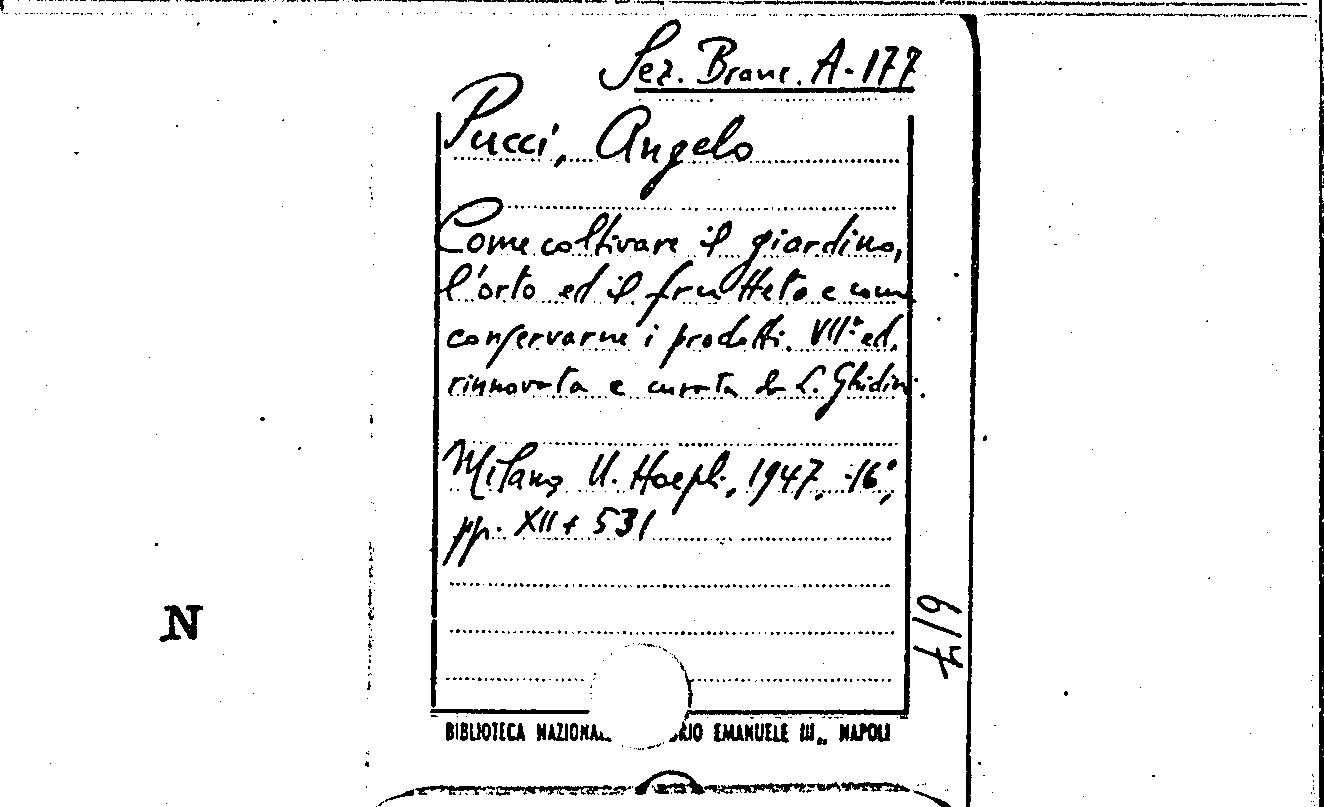 Sez. Branc. A-177
Pucci, Angelo
Come coltivare il giardino,
l'orto ed il frutteto e come
conservarne i prodotti. VIIª ed.
rinnovata e curata da L. Ghidini.
Milano, U. Hoepli, 1947, -16°,
pp. XII + 531
619
N
BIBLIOTECA NAZIONA RIO EMANUELE III„ NAPOLI